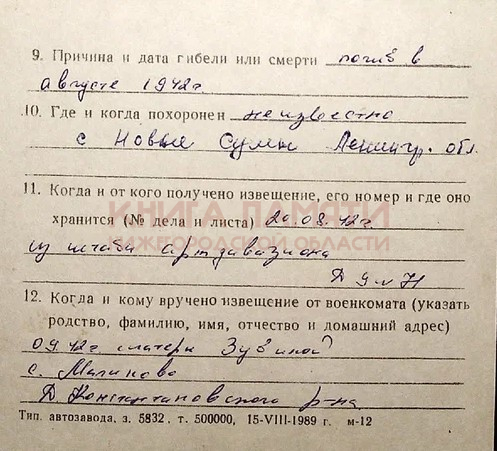 9. Причина и дата гибели или смерти погиб в
августе 1942г.
10. Где и когда похоронен неизвестно
с Новые Сумы Ленингр. обл.
11. Когда и от кого получено извещение, его номер и где оно
хранится (№ дела и листа) 20.08.42г.
КНИГА ПАМЯТИ
НИЖЕГОРОДСКОЙ ОБЛАСТИ
из штаба артдивизиона
12. Когда и кому вручено извещение от военкомата (указать
родство, фамилию, имя, отчество и домашний адрес)
09.42г. матери Зубиной
с. Малиново
Д. Константиновского р-на
Тип. автозавода, з. 5832, т. 500000, 15-VIII-1989 г. м-12